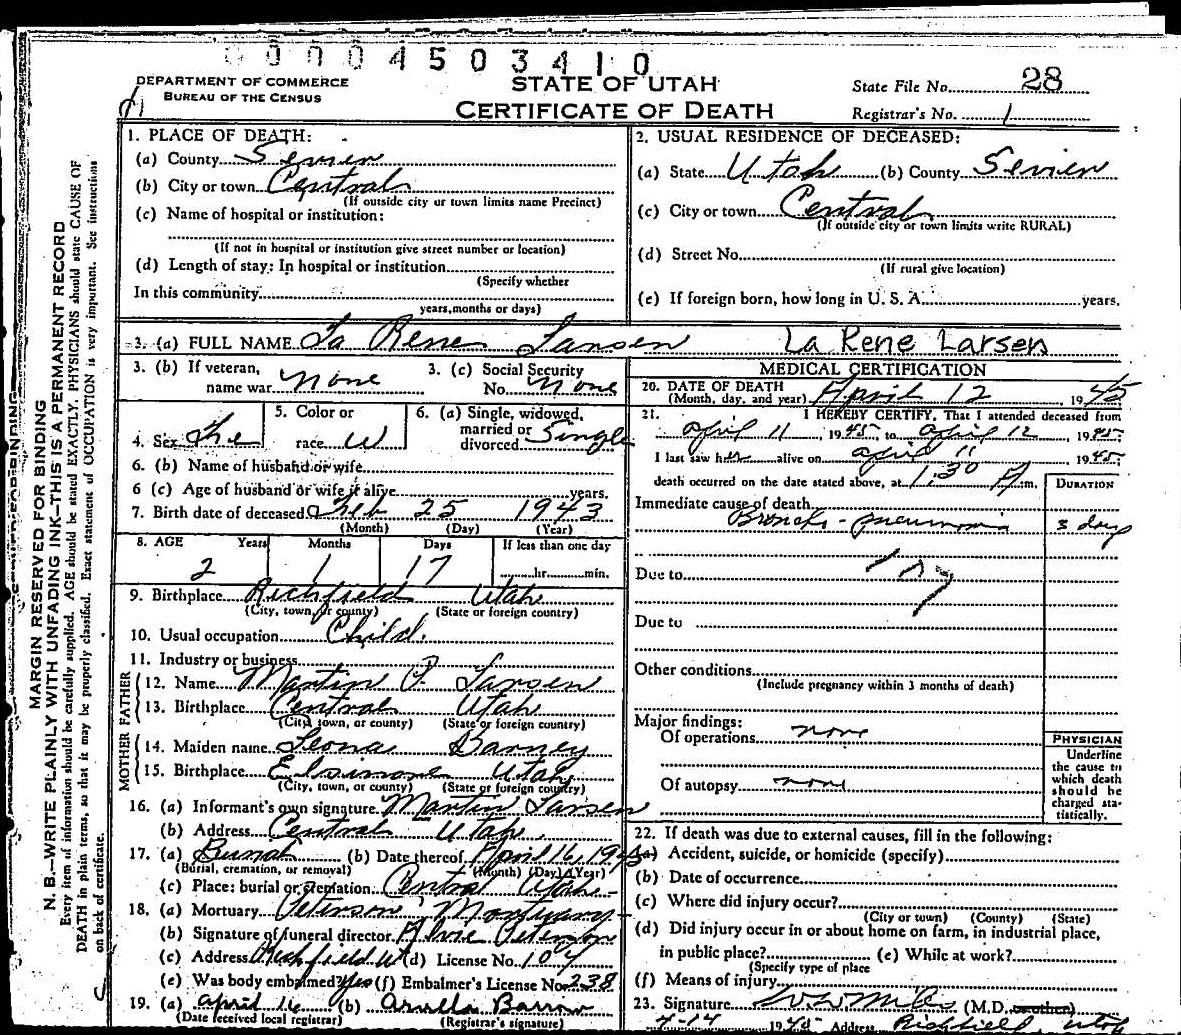 00004503410
DEPARTMENT OF COMMERCE
BUREAU OF THE CENSUS
STATE OF UTAH
CERTIFICATE OF DEATH
State File No. 28
Registrar's No. 1
MARGIN RESERVED FOR BINDING
N. B.—WRITE PLAINLY WITH UNFADING INK—THIS IS A PERMANENT RECORD
Every item of information should be carefully supplied. AGE should be stated EXACTLY. PHYSICIANS should state CAUSE OF
DEATH in plain terms, so that it may be properly classified. Exact statement of OCCUPATION is very important. See instructions
on back of certificate.
1. PLACE OF DEATH:
(a) County Sevier
(b) City or town Central
(If outside city or town limits name Precinct)
(c) Name of hospital or institution:
(If not in hospital or institution give street number or location)
(d) Length of stay: In hospital or institution
(Specify whether
In this community
years, months or days)
2. USUAL RESIDENCE OF DECEASED:
(a) State Utah (b) County Sevier
(c) City or town Central
(If outside city or town limits write RURAL)
(d) Street No.
(If rural give location)
(e) If foreign born, how long in U. S. A. years.
3. (a) FULL NAME La Rene Larsen La Rene Larsen
3. (b) If veteran,
name war none
3. (c) Social Security
No. none
4. Sex Fe
5. Color or
race W
6. (a) Single, widowed,
married or
divorced Single
6. (b) Name of husband or wife
6 (c) Age of husband or wife if alive years.
7. Birth date of deceased Feb 25 1943
(Month) (Day) (Year)
8. AGE Years Months Days If less than one day
2 1 17 hr. min.
9. Birthplace Richfield Utah
(City, town, or county) (State or foreign country)
10. Usual occupation Child.
11. Industry or business
FATHER
12. Name Martin P. Larsen
13. Birthplace Central Utah
(City, town, or county) (State or foreign country)
MOTHER
14. Maiden name Leona Barney
15. Birthplace Elsinore Utah
(City, town, or county) (State or foreign country)
16. (a) Informant's own signature Martin Larsen
(b) Address Central Utah
17. (a) Burial (b) Date thereof April 16, 1945
(Burial, cremation, or removal) (Month) (Day) (Year)
(c) Place: burial or cremation Central Utah
18. (a) Mortuary Peterson Mortuary
(b) Signature of funeral director Peterson
(c) Address Richfield Ut (d) License No. 104
(e) Was body embalmed? Yes (f) Embalmer's License No. 238
19. (a) April 16 (b) Arvilla Barrow
(Date received local registrar) (Registrar's signature)
MEDICAL CERTIFICATION
20. DATE OF DEATH
(Month, day, and year) April 12, 1945
21. I HEREBY CERTIFY, That I attended deceased from
April 11, 1945, to April 12, 1945.
I last saw her alive on April 11 1945;
death occurred on the date stated above, at 1:30 P m.
DURATION
Immediate cause of death
Broncho-pneumonia 3 days
Due to
107
Due to
Other conditions
(Include pregnancy within 3 months of death)
Major findings:
Of operations none
Of autopsy none
PHYSICIAN
Underline
the cause to
which death
should be
charged sta-
tistically.
22. If death was due to external causes, fill in the following:
(a) Accident, suicide, or homicide (specify)
(b) Date of occurrence
(c) Where did injury occur?
(City or town) (County) (State)
(d) Did injury occur in or about home on farm, in industrial place,
in public place? (e) While at work?
(Specify type of place
(f) Means of injury
23. Signature Miles (M.D. or other)
4-14 1945 Address Richfield Utah